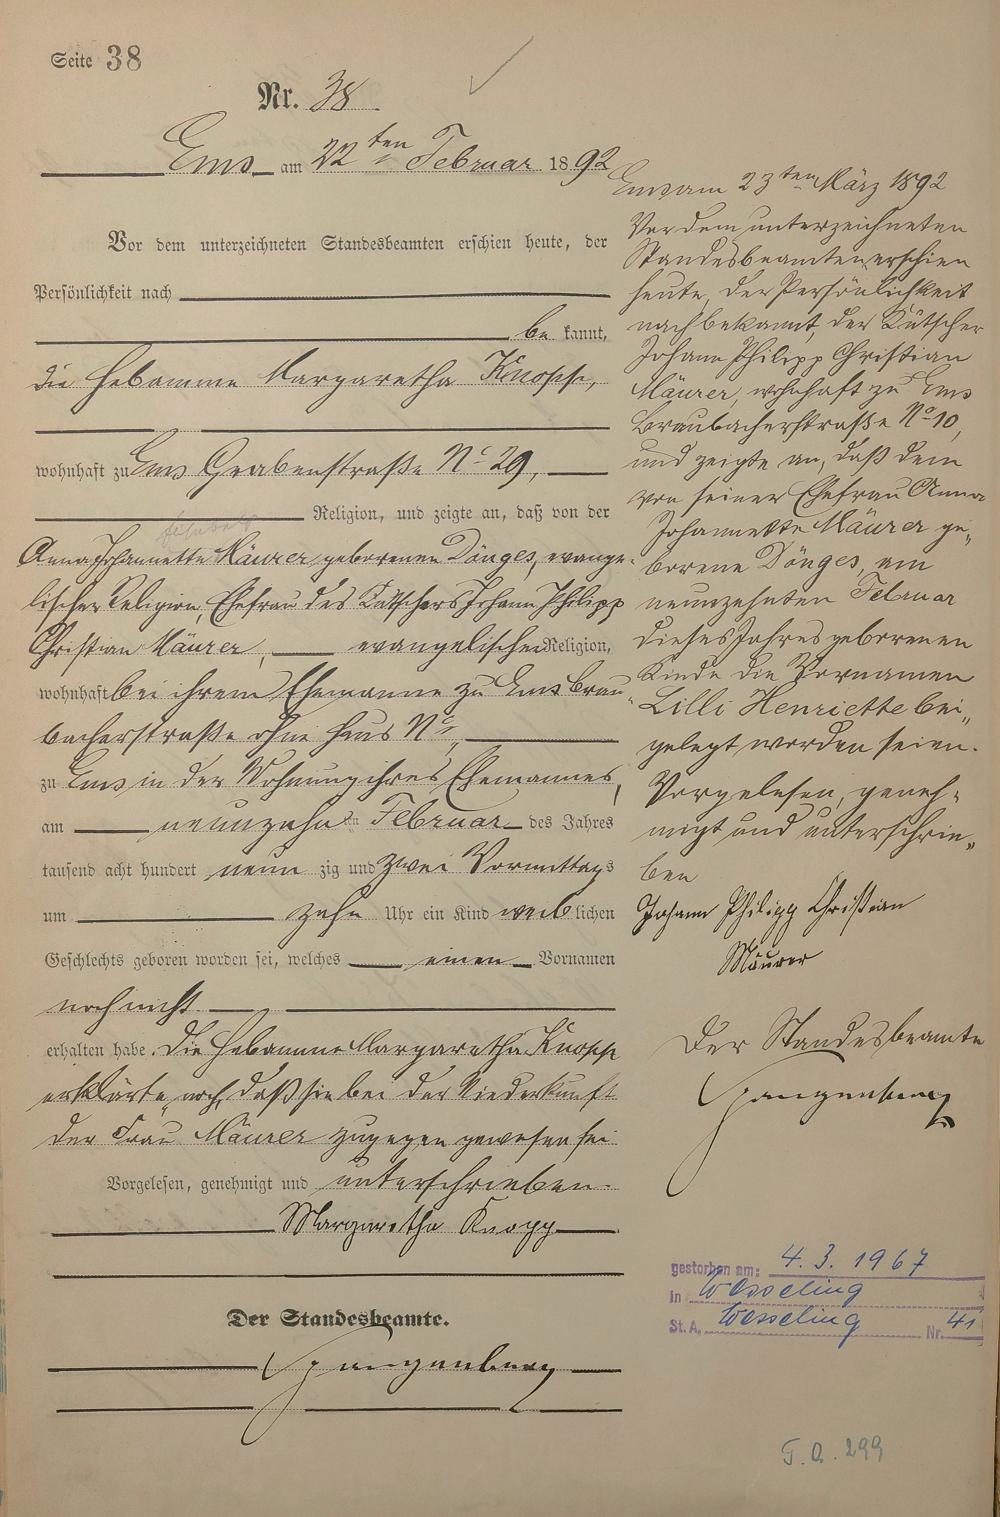 Seite 38
Nr. 38.
Ems am 22ten Februar 1892
Vor dem unterzeichneten Standesbeamten erschien heute, der
Persönlichkeit nach
be kannt,
die Hebamme Margaretha Knopp,
wohnhaft zu Ems Grabenstraße No 29,
Religion, und zeigte an, daß von der
Anna Johannette Mäurer geborenen Dönges, evange-
lischer Religion, Ehefrau des Kutschers Johann Philipp
Christian Mäurer, evangelischer Religion,
wohnhaft bei ihrem Ehemanne zu Ems Brau-
bacherstraße ohne Haus No,
zu Ems in der Wohnung ihres Ehemannes,
am neunzehnten Februar des Jahres
tausend acht hundert neun zig und zwei Vormittags
um zehn Uhr ein Kind weiblichen
Geschlechts geboren worden sei, welches einen Vornamen
noch nicht
erhalten habe. Die Hebamme Margaretha Knopp
erklärte noch, daß sie bei der Niederkunft
der Frau Mäurer zugegen gewesen sei
Vorgelesen, genehmigt und unterschrieben.
Margaretha Knopp
Der Standesbeamte.
Spangenberg
Ems am 23ten März 1892
Vor dem unterzeichneten
Standesbeamten erschien
heute, der Persönlichkeit
nach bekannt, der Kutscher
Johann Philipp Christian
Mäurer, wohnhaft zu Ems
Braubacherstraße No 10,
und zeigte an, daß dem
von seiner Ehefrau Anna
Johannette Mäurer ge„
borene Dönges, am
neunzehnten Februar
dieses Jahres geborenen
Kinde die Vornamen
Lilli Henriette bei„
gelegt worden seien.
Vorgelesen, geneh-
migt und unterschrie„
ben
Johann Philipp Christian
Mäurer
Der Standesbeamte
Spangenberg
gestorben am: 4. 3. 1967
in Wesseling
St. A. Wesseling Nr. 41
T. A. 299